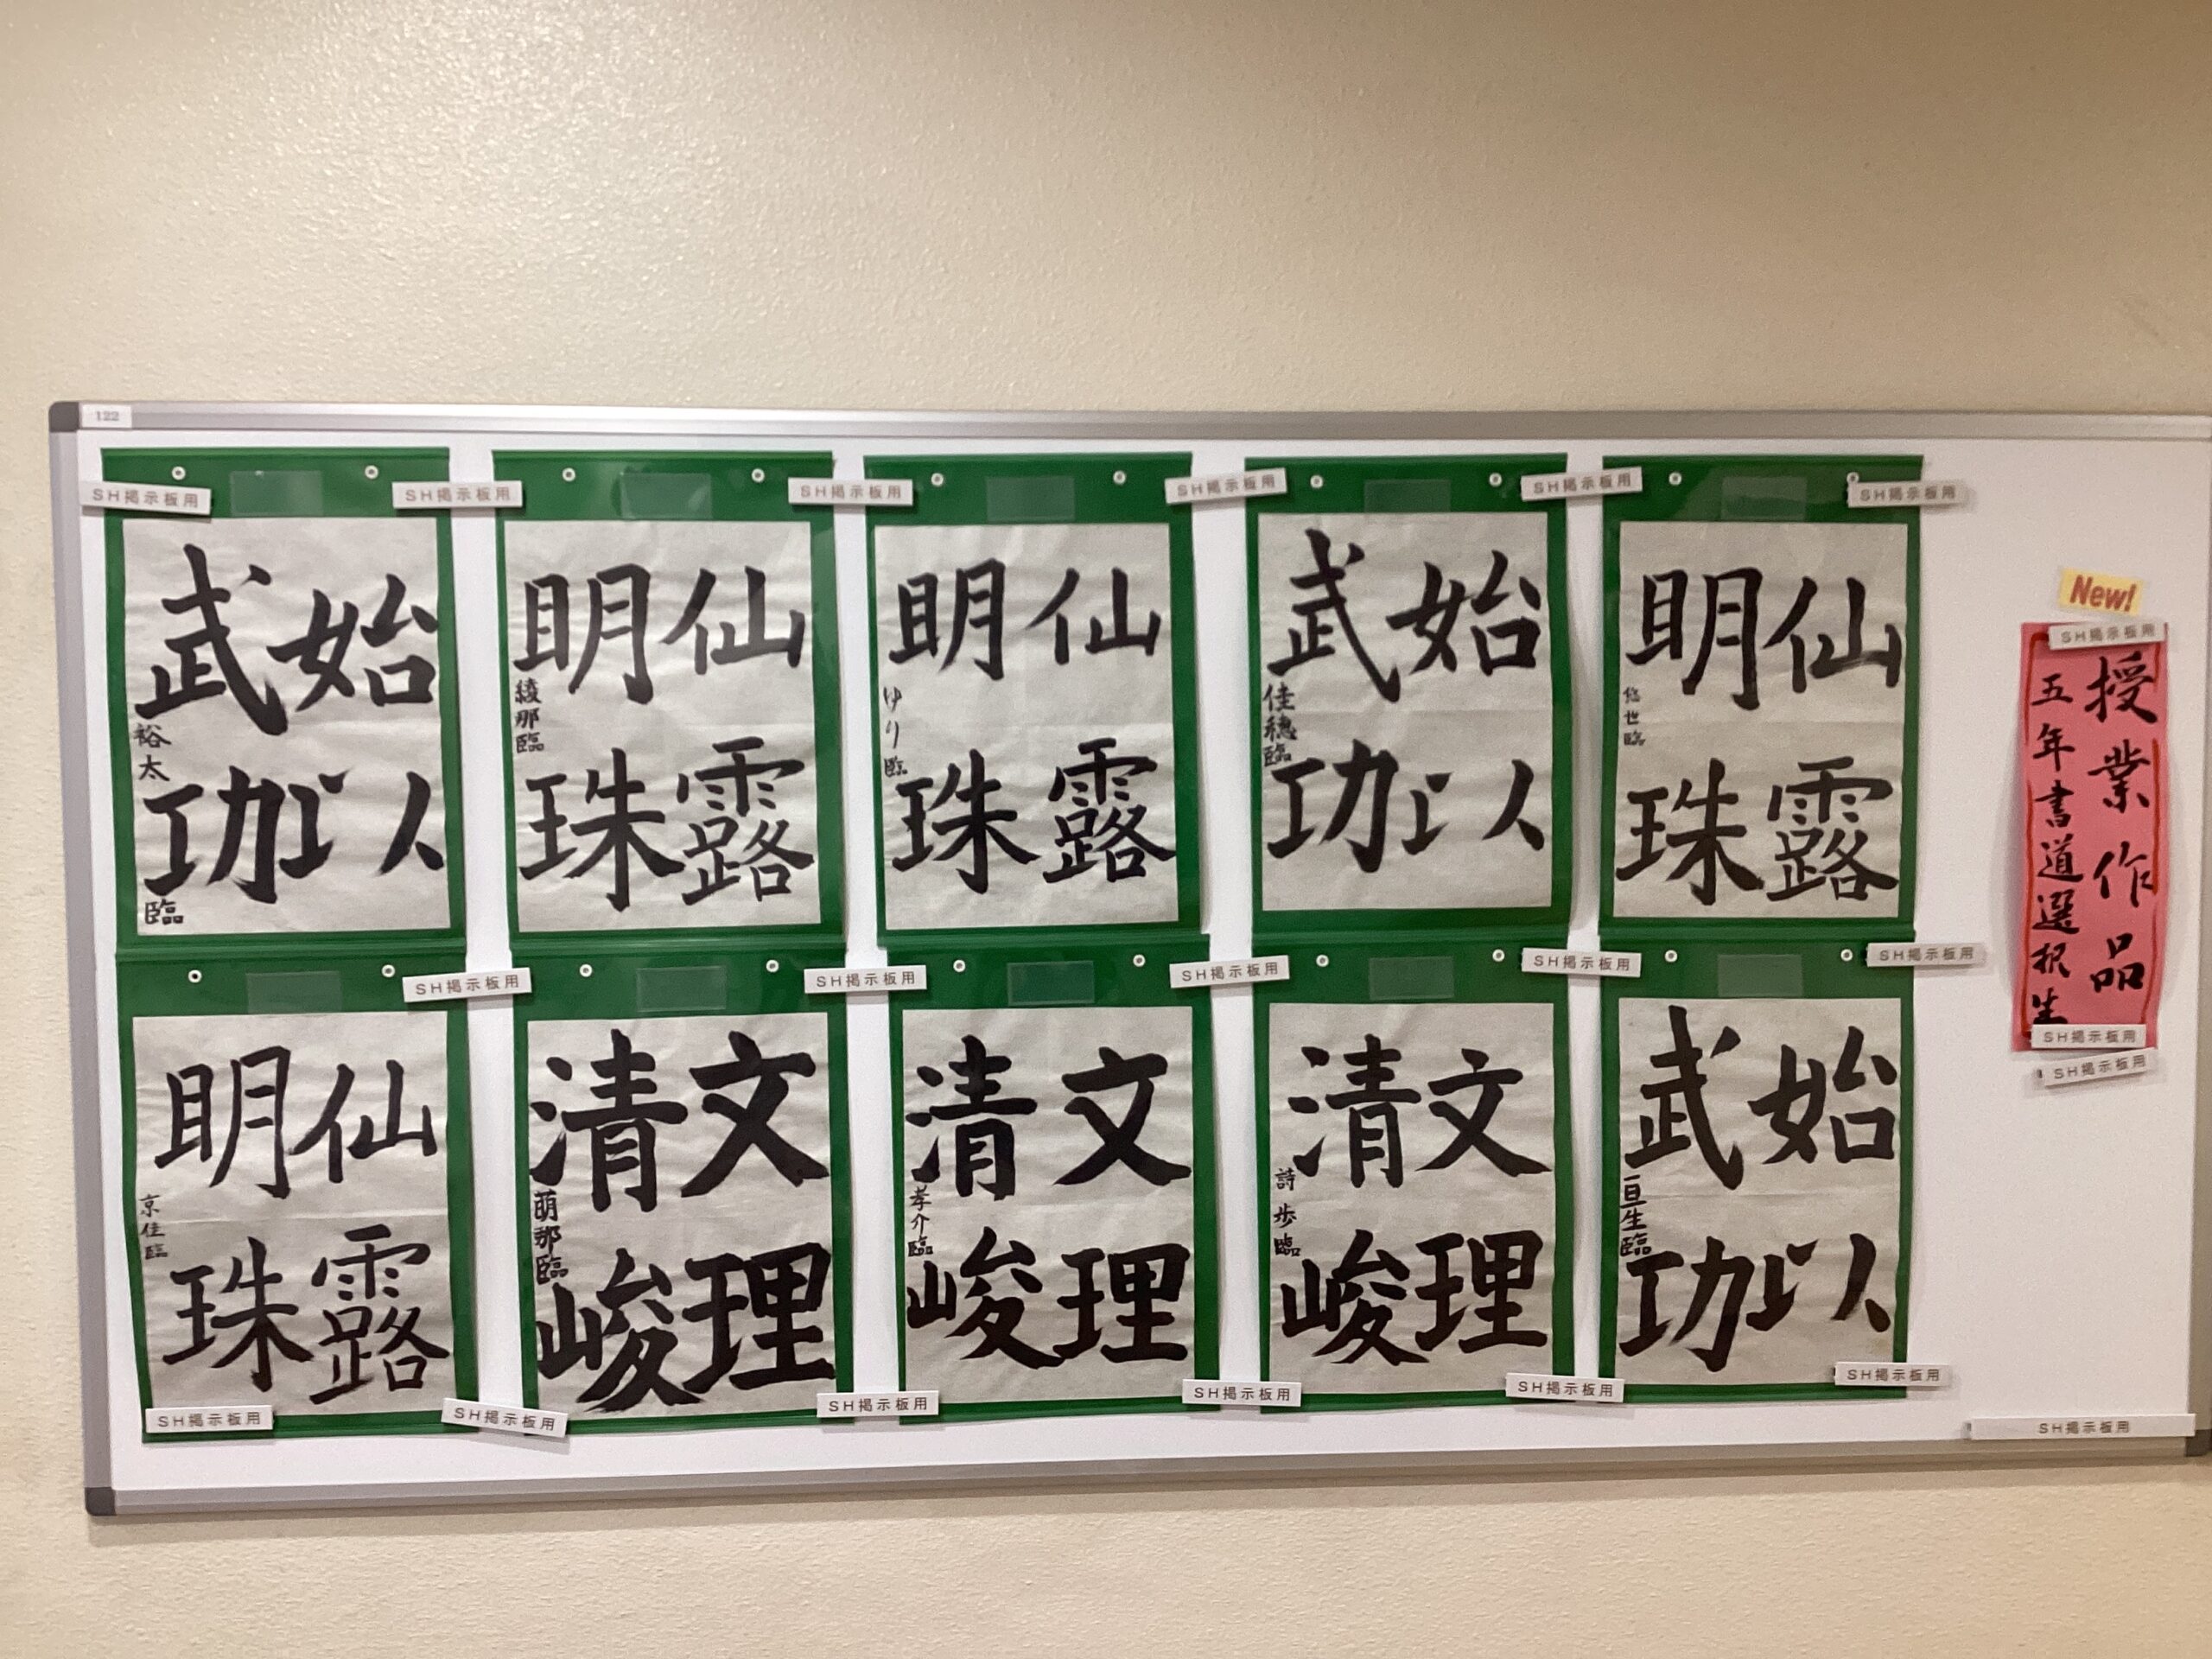 122
SH掲示板用
SH掲示板用
SH掲示板用
SH掲示板用
SH掲示板用
SH掲示板用
始以
武功
裕太臨
仙露
明珠
綾那臨
仙露
明珠
ゆり臨
始以
武功
佳穂臨
仙露
明珠
悠世臨
SH掲示板用
SH掲示板用
SH掲示板用
SH掲示板用
SH掲示板用
仙露
明珠
京佳臨
文理
清峻
萌那臨
文理
清峻
孝介臨
文理
清峻
詩歩臨
始以
武功
亘生臨
SH掲示板用
SH掲示板用
SH掲示板用
SH掲示板用
SH掲示板用
SH掲示板用
New!
SH掲示板用
授業作品
五年書道選択生
SH掲示板用
SH掲示板用
SH掲示板用